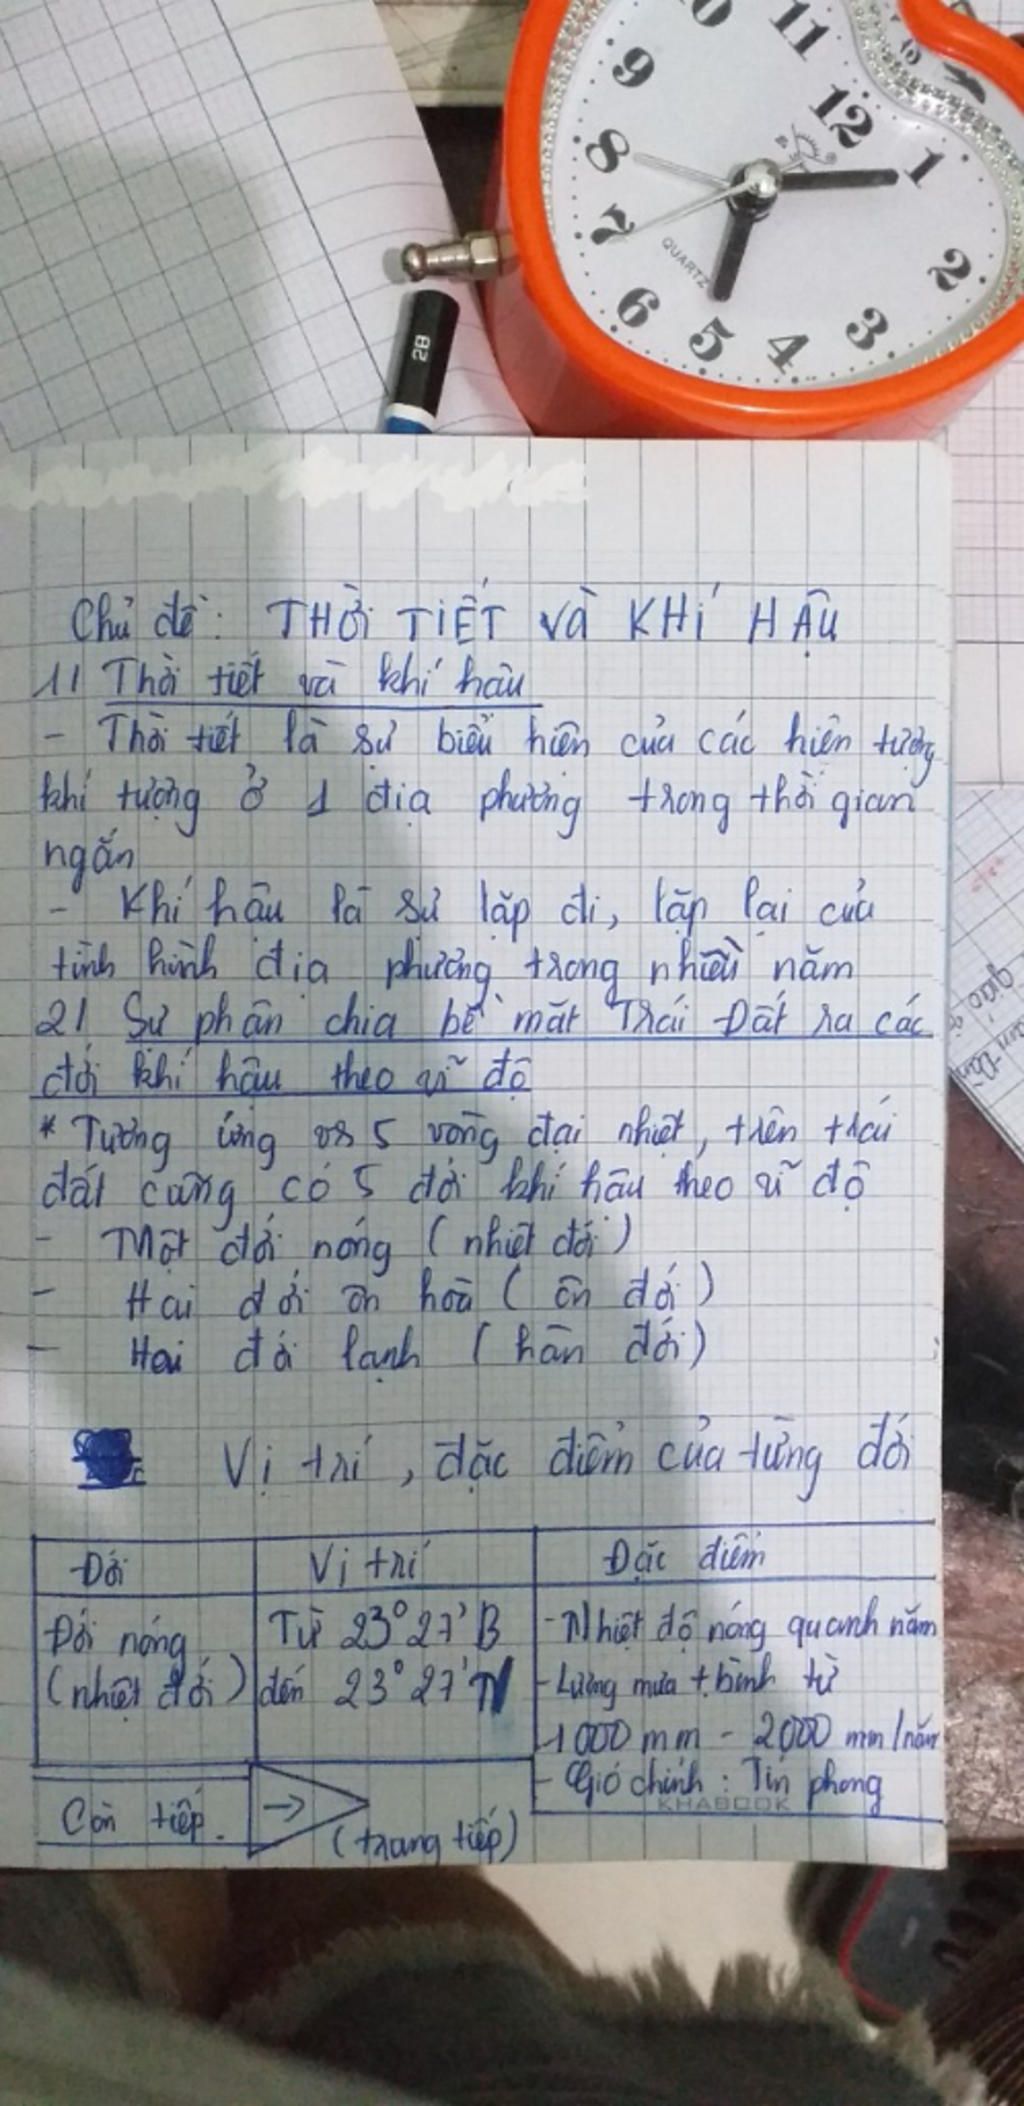 10 11 12 1 2 3 4 5 6 7 8 9
QUARTZ
2B
Chủ đề: THỜI TIẾT VÀ KHÍ HẬU
1/ Thời tiết và khí hậu
- Thời tiết là sự biểu hiện của các hiện tượng
khí tượng ở 1 địa phương trong thời gian
ngắn
- Khí hậu là sự lặp đi, lặp lại của
tình hình địa phương trong nhiều năm
2/ Sự phân chia bề mặt Trái Đất ra các
đới khí hậu theo vĩ độ
* Tương ứng vs 5 vòng đai nhiệt, trên trái
đất cũng có 5 đới khí hậu theo vĩ độ
- Một đới nóng (nhiệt đới)
- Hai đới ôn hoà (ôn đới)
- Hai đới lạnh (hàn đới)
Vị trí, đặc điểm của từng đới
Đới Vị trí Đặc điểm
Đới nóng
(nhiệt đới)
Từ 23°27'B
đến 23°27'N
- Nhiệt độ nóng quanh năm
- Lượng mưa t.bình từ
1000 mm - 2000 mm/năm
- Gió chính: Tín phong
KHABOOK
Còn tiếp. → (trang tiếp)